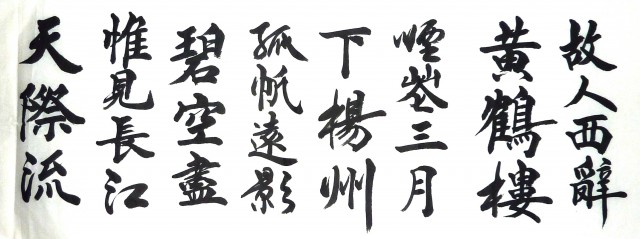 故人西辭
黄鶴樓
煙花三月
下揚州
孤帆遠影
碧空盡
惟見長江
天際流